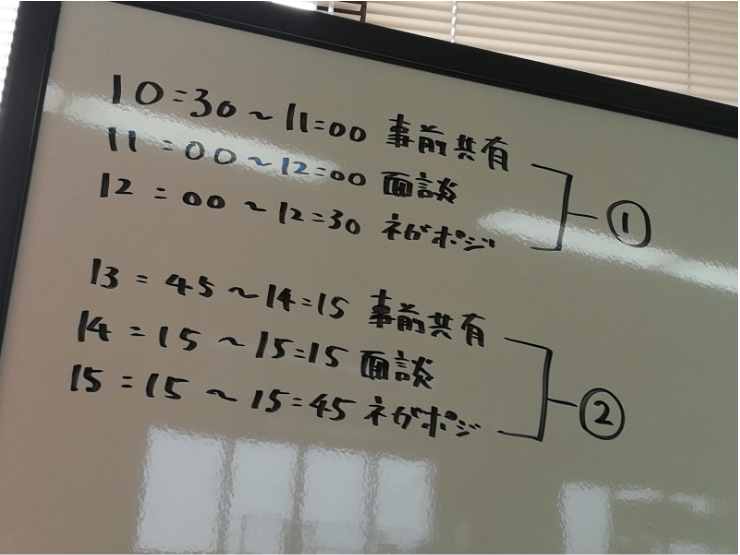 10:30~11:00 事前共有
11:00~12:00 面談
12:00~12:30 ネガポジ
①
13:45~14:15 事前共有
14:15~15:15 面談
15:15~15:45 ネガポジ
②